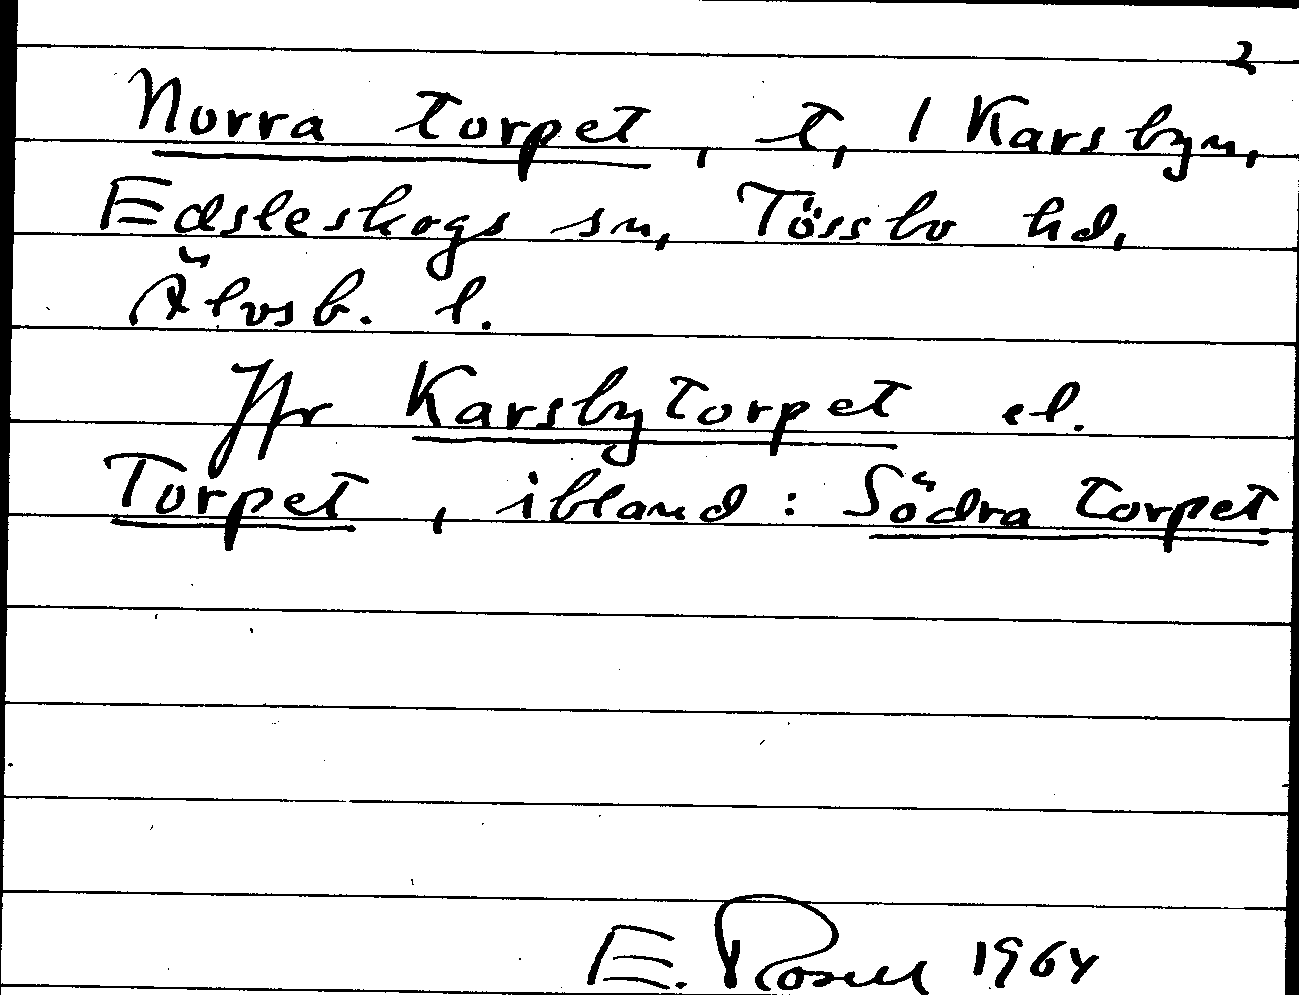 2
Norra torpet, t, 1 Karsbyn,
Edsleskogs sn, Tössbo hd,
Älvsb. l.
Jfr Karsbytorpet el.
Torpet, ibland: Södra torpet
E. Rosell 1964